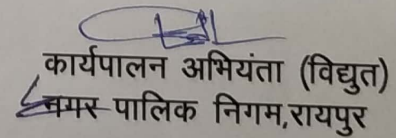 कार्यपालन अभियंता (विद्युत)
नगर पालिक निगम,रायपुर